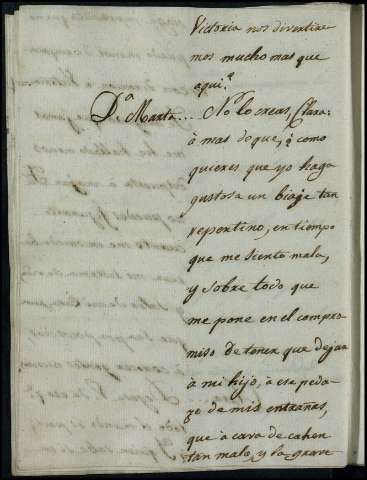 Victoria nos divertire
mos mucho mas que
aqui.ª
D.ª Marta... No lo creas, Clara:
à mas de que, ¿como
quieres que yo haga
gustosa un biaje tan
repentino, en tiempo
que me siento mala,
y sobre todo que
me pone en el compro
miso de tener que dejar
à mi hijo, à ese peda
zo de mis entrañas,
que à cara de cahen
tan malo, y lo grave